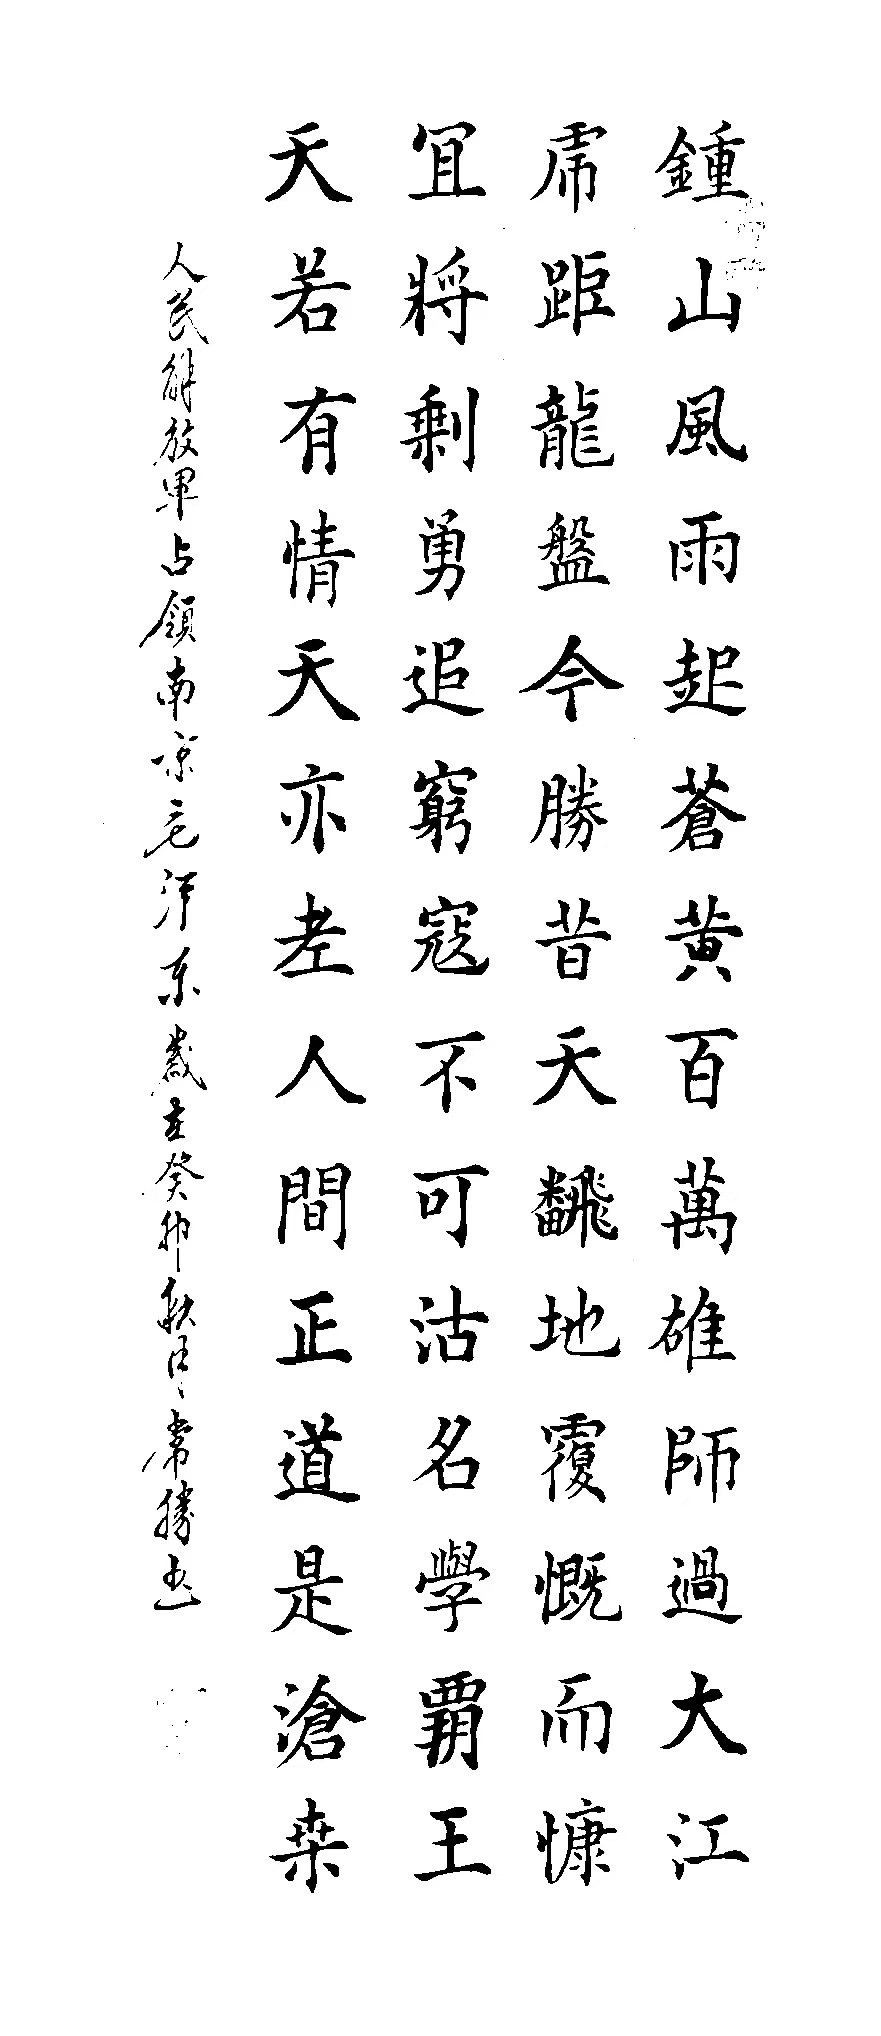 鍾山風雨起蒼黄百萬雄師過大江
虎距龍盤今勝昔天飜地覆慨而慷
冝將剩勇追窮寇不可沽名學覇王
天若有情天亦老人間正道是滄桒
人民解放军占領南京毛泽东歲在癸卯秋月常勝书